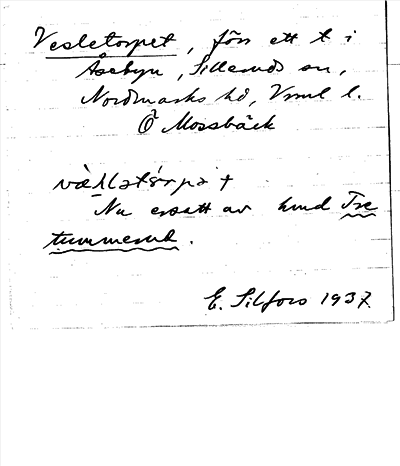 Vesletorpet, förr ett t i
Åsebyn, Silleruds sn,
Nordmarks hd, Vrml l.
Ö Mossbäck
Nu ersatt av kmd Tre
tummerud.
E. Silfors 1937